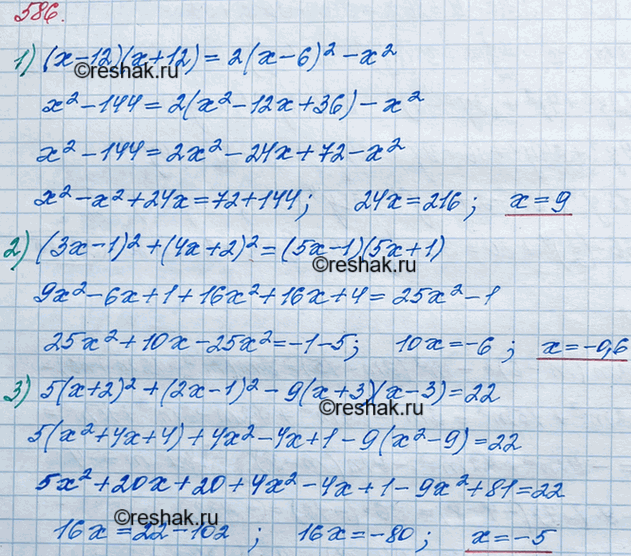 586.
1) (x-12)(x+12) = 2(x-6)² - x²
©reshak.ru
x² - 144 = 2(x² - 12x + 36) - x²
x² - 144 = 2x² - 24x + 72 - x²
x² - x² + 24x = 72 + 144; 24x = 216; x = 9
2) (3x-1)² + (4x+2)² = (5x-1)(5x+1)
©reshak.ru
9x² - 6x + 1 + 16x² + 16x + 4 = 25x² - 1
25x² + 10x - 25x² = -1 - 5; 10x = -6; x = -0,6
3) 5(x+2)² + (2x-1)² - 9(x+3)(x-3) = 22
©reshak.ru
5(x² + 4x + 4) + 4x² - 4x + 1 - 9(x² - 9) = 22
5x² + 20x + 20 + 4x² - 4x + 1 - 9x² + 81 = 22
16x = 22 - 102; 16x = -80; x = -5
©reshak.ru